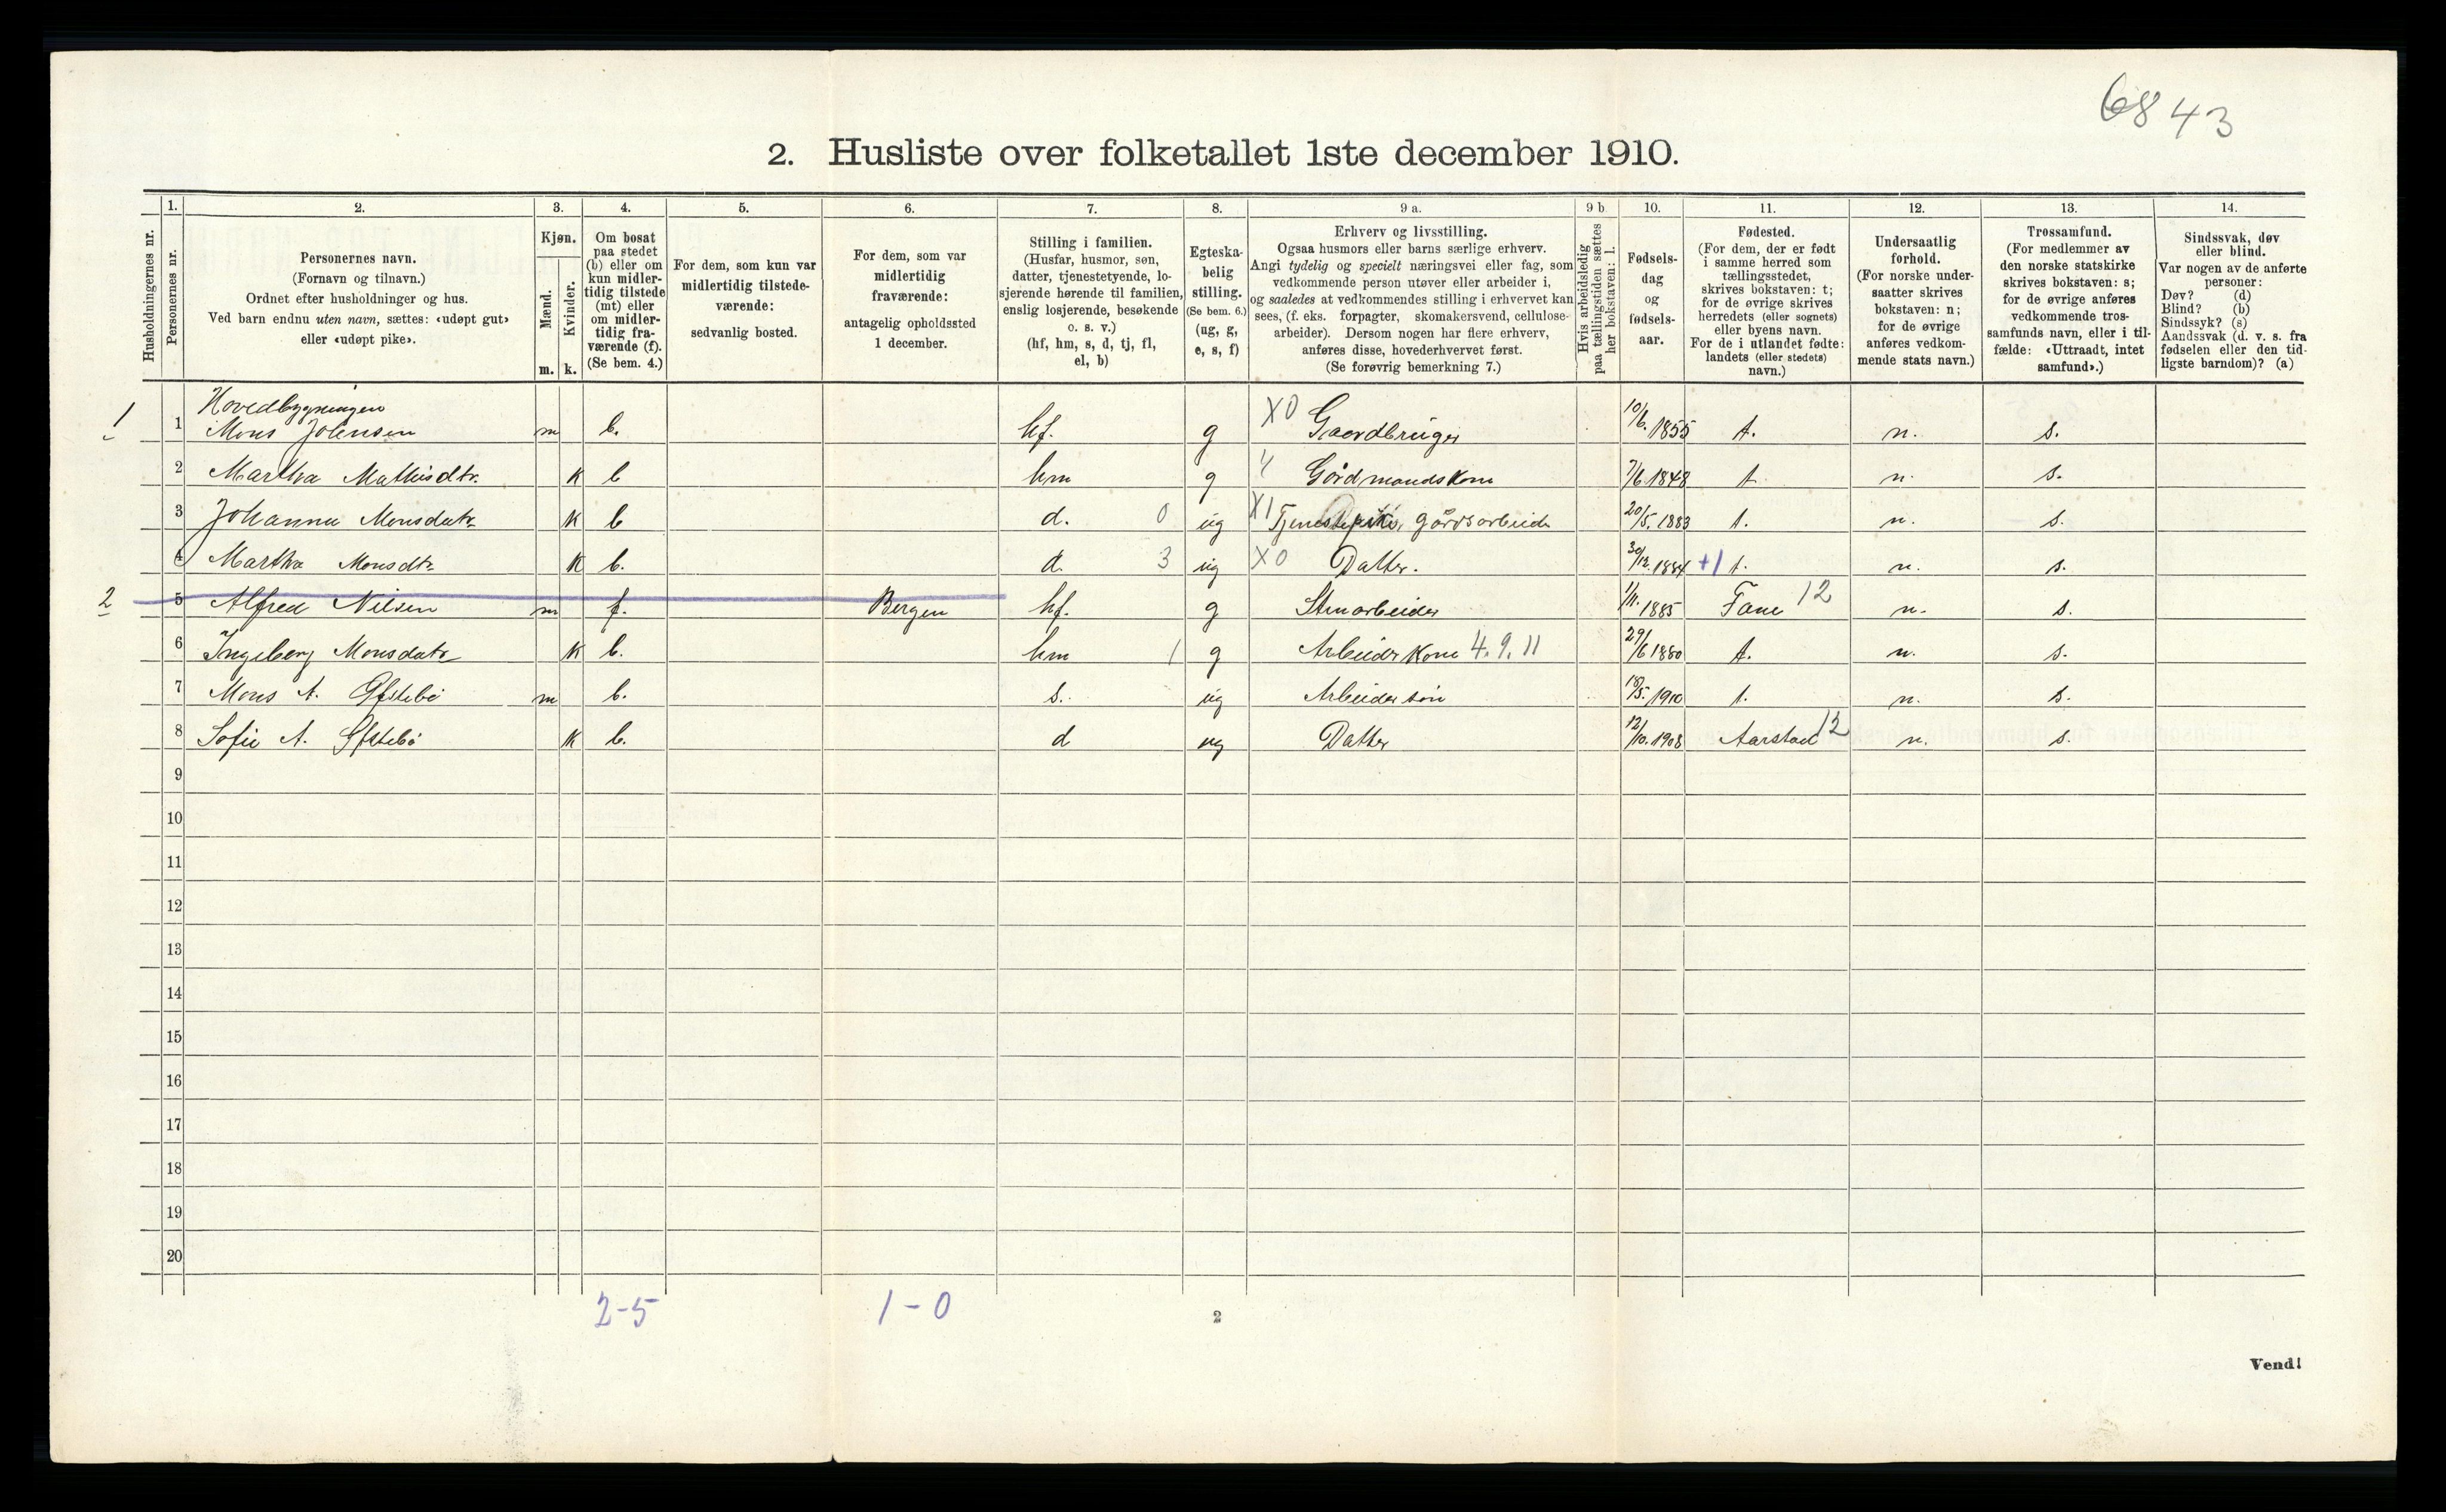 6843
2. Husliste over folketallet 1ste december 1910.
Husholdningernes nr.
1. Personernes nr.
2. Personernes navn.
(Fornavn og tilnavn.)
Ordnet efter husholdninger og hus.
Ved barn endnu uten navn, sættes: «udøpt gut»
eller «udøpt pike».
3. Kjøn.
Mænd. m.
Kvinder. k.
4. Om bosat
paa stedet
(b) eller om
kun midler-
tidig tilstede
(mt) eller
om midler-
tidig fra-
værende (f).
(Se bem. 4.)
5. For dem, som kun var
midlertidig tilstede-
værende:
sedvanlig bosted.
6. For dem, som var
midlertidig
fraværende:
antagelig opholdssted
1 december.
7. Stilling i familien.
(Husfar, husmor, søn,
datter, tjenestetyende, lo-
sjerende hørende til familien,
enslig losjerende, besøkende
o. s. v.)
(hf, hm, s, d, tj, fl,
el, b)
8. Egteska-
belig
stilling.
(Se bem. 6.)
(ug, g,
e, s, f)
9 a. Erhverv og livsstilling.
Ogsaa husmors eller barns særlige erhverv.
Angi tydelig og specielt næringsvei eller fag, som
vedkommende person utøver eller arbeider i,
og saaledes at vedkommendes stilling i erhvervet kan
sees, (f. eks. forpagter, skomakersvend, cellulose-
arbeider). Dersom nogen har flere erhverv,
anføres disse, hovederhvervet først.
(Se forøvrig bemerkning 7.)
9 b Hvis arbeidsledig
paa tællingstiden sættes
her bokstaven: l.
10. Fødsels-
dag
og
fødsels-
aar.
11. Fødested.
(For dem, der er født
i samme herred som
tællingsstedet,
skrives bokstaven: t;
for de øvrige skrives
herredets (eller sognets)
eller byens navn.
For de i utlandet fødte:
landets (eller stedets)
navn.)
12. Undersaatlig
forhold.
(For norske under-
saatter skrives
bokstaven: n;
for de øvrige
anføres vedkom-
mende stats navn.)
13. Trossamfund.
(For medlemmer av
den norske statskirke
skrives bokstaven: s;
for de øvrige anføres
vedkommende tros-
samfunds navn, eller i til-
fælde: «Uttraadt, intet
samfund».)
14. Sindssvak, døv
eller blind.
Var nogen av de anførte
personer:
Døv? (d)
Blind? (b)
Sindssyk? (s)
Aandssvak (d. v. s. fra
fødselen eller den tid-
ligste barndom)? (a)
Hovedbygningen
1 1 Mons Johnsen m b. hf. g X0 Gaardbruger 10/6. 1855 t. n. s.
2 Martha Mathisdtr. K b hm g 4 Gårdmandskone 7/6 1848 t n. s.
3 Johanna Monsdatr K b d. 0 ug X1 Tjenestepike, gårdsarbeide 20/5. 1883 t. n. s.
4 Martha Monsdtr K b. d. 3 ug X0 Datter. 30/12. 1884 +1 t. n. s.
2 5 Alfred Nilsen m f. Bergen hf. g Stenarbeider 1/11. 1885 Fane 12 n. s.
6 Ingeborg Monsdatr K b. hm 1 g Arbeiderkone 4.9.11 29/6 1880 t. n. s.
7 Mons A. Øfstebö m b. s. ug Arbeidersön 18/5. 1910 t. n. s.
8 Sofie A. Øfstebö K b. d ug Datter 12/10. 1908 Aarstad 12 n. s.
9
10
11
12
13
14
15
16
17
18
19
20
2-5 1-0
2
Vend!